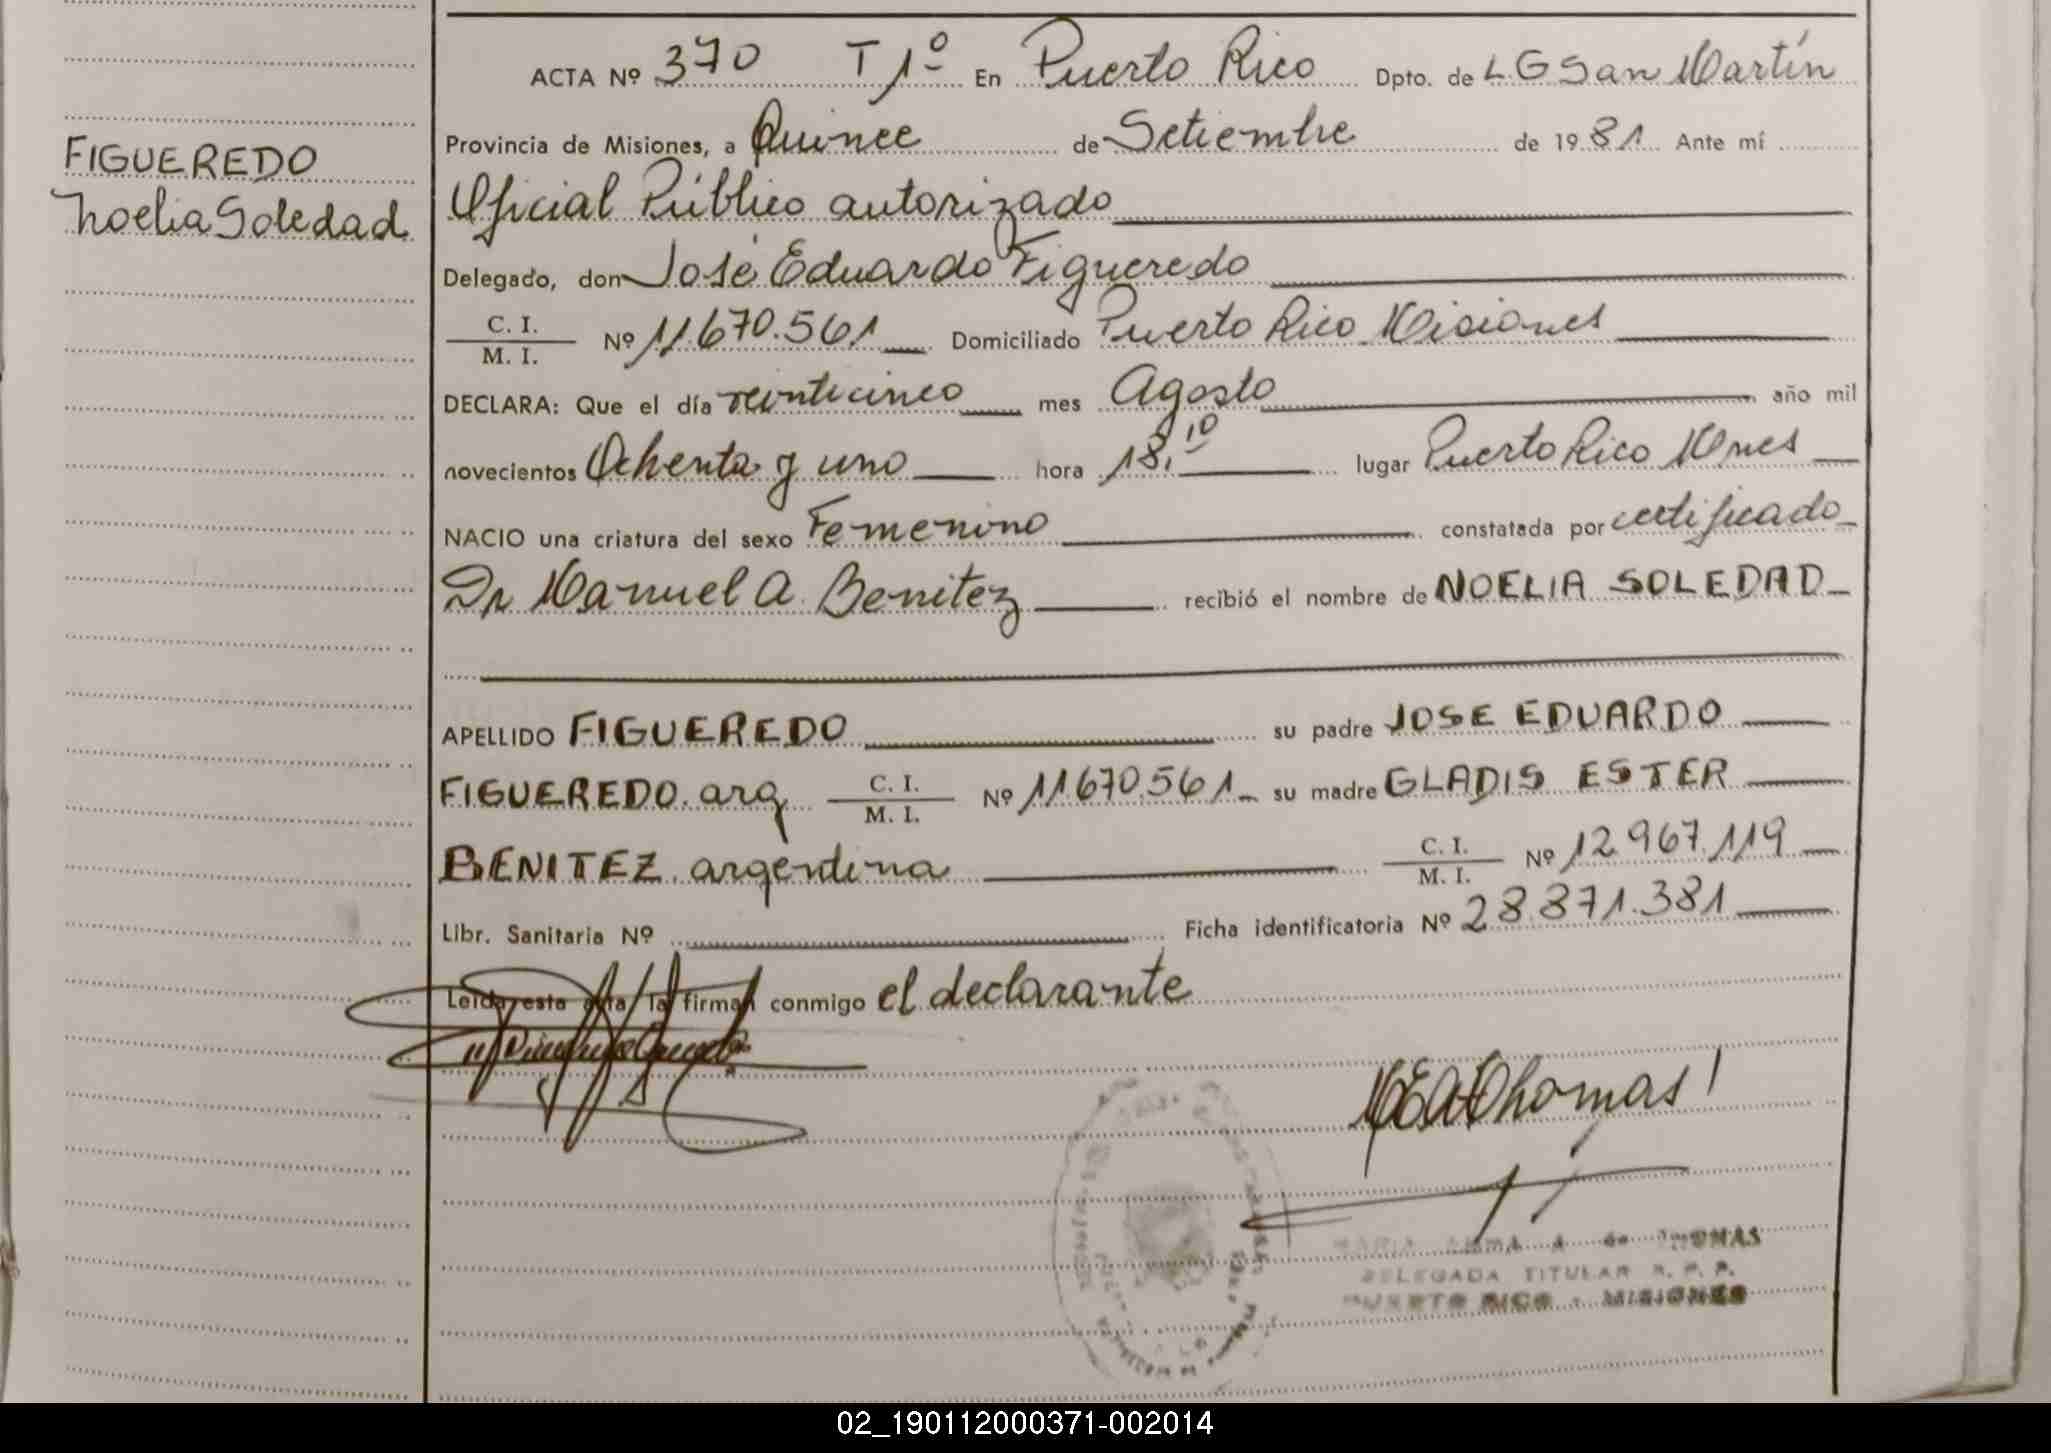 ACTA Nº 370 T 1º En Puerto Rico Dpto. de L G San Martín
Provincia de Misiones, a Quince de Setiembre de 1981 Ante mí
FIGUEREDO
Noelia Soledad
Oficial Público autorizado
Delegado, don José Eduardo Figueredo
C. I.
M. I.
Nº 11.670.561 Domiciliado Puerto Rico Misiones
DECLARA: Que el día veinticinco mes Agosto año mil
novecientos Ochenta y uno hora 18,10 lugar Puerto Rico Mnes
NACIO una criatura del sexo Femenino constatada por certificado
Dr Manuel A. Benitez recibió el nombre de NOELIA SOLEDAD
APELLIDO FIGUEREDO su padre JOSE EDUARDO
FIGUEREDO. arg C. I. M. I. Nº 11.670.561 su madre GLADIS ESTER
BENITEZ. argentina C. I. M. I. Nº 12.967.119
Libr. Sanitaria Nº Ficha identificatoria Nº 28.871.381
Leída esta acta la firman conmigo el declarante
THOMAS
DELEGADA TITULAR R. P. P.
PUERTO RICO - MISIONES
02_190112000371-002014